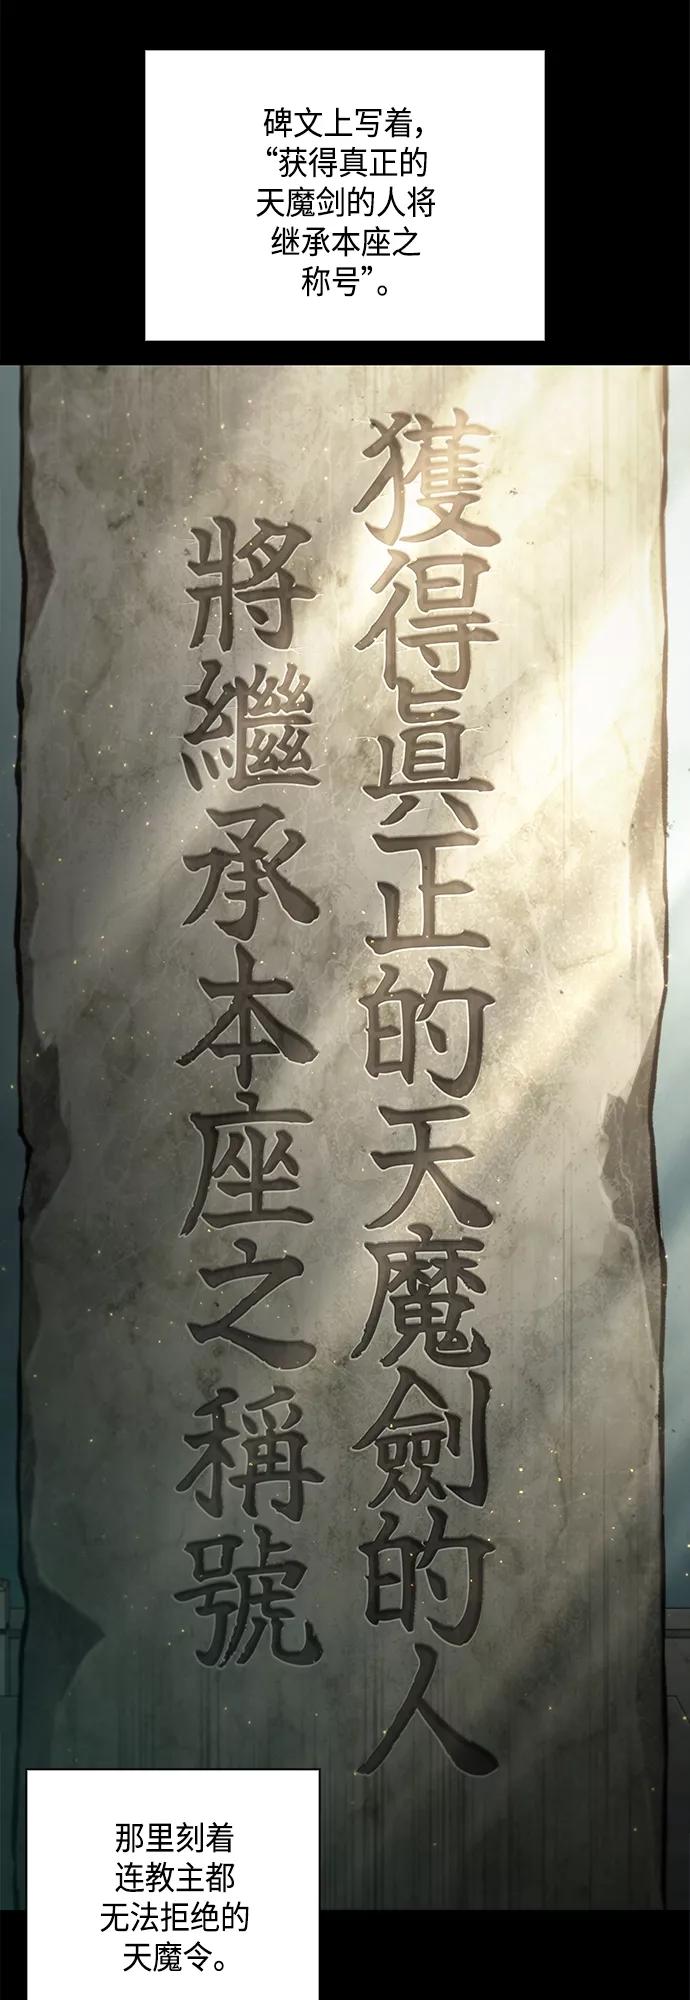 碑文上写着，
“获得真正的
天魔剑的人将
继承本座之
称号”。
獲得眞正的天魔劍的人
將繼承本座之稱號
那里刻着
连教主都
无法拒绝的
天魔令。